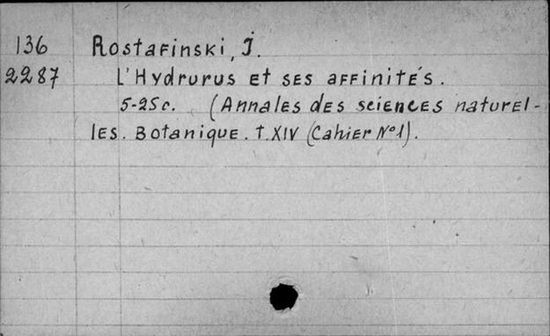 136 Rostafinski, J.
2287 L'Hydrurus et ses affinités.
5-25c. (Annales des sciences naturel-
les. Botanique. t. XIV (Cahier Nº1).